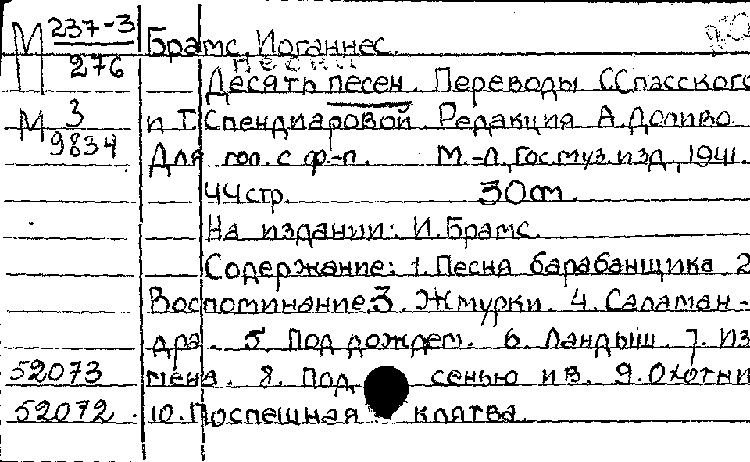 М 237-3
276
Брамс, Иоганнес.
песни
Десять песен. Переводы С.Спасского
М 3
9834
и Т.Спендиаровой. Редакция А.Доливо.
Для гол. с ф-п. М.-Л., Гос.муз.изд., 1941.
44стр. 30см.
На издании: И.Брамс.
Содержание: 1.Песня барабанщика 2
Воспоминание.3. Жмурки. 4. Саламан-
дра. 5. Под дождем. 6. Ландыш. 7. Из
52073 мена. 8. Под сенью ив. 9.Охотни
52072. 10.Поспешная клятва.